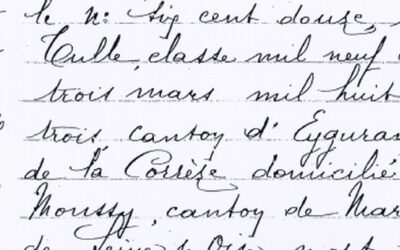 le N: six cent douze,
Tulle, classe mil neuf
trois mars mil huit
trois, canton d'Eyguran
de la Corrèze domicilié
Moussy, canton de Mar
de Seine & Oise,